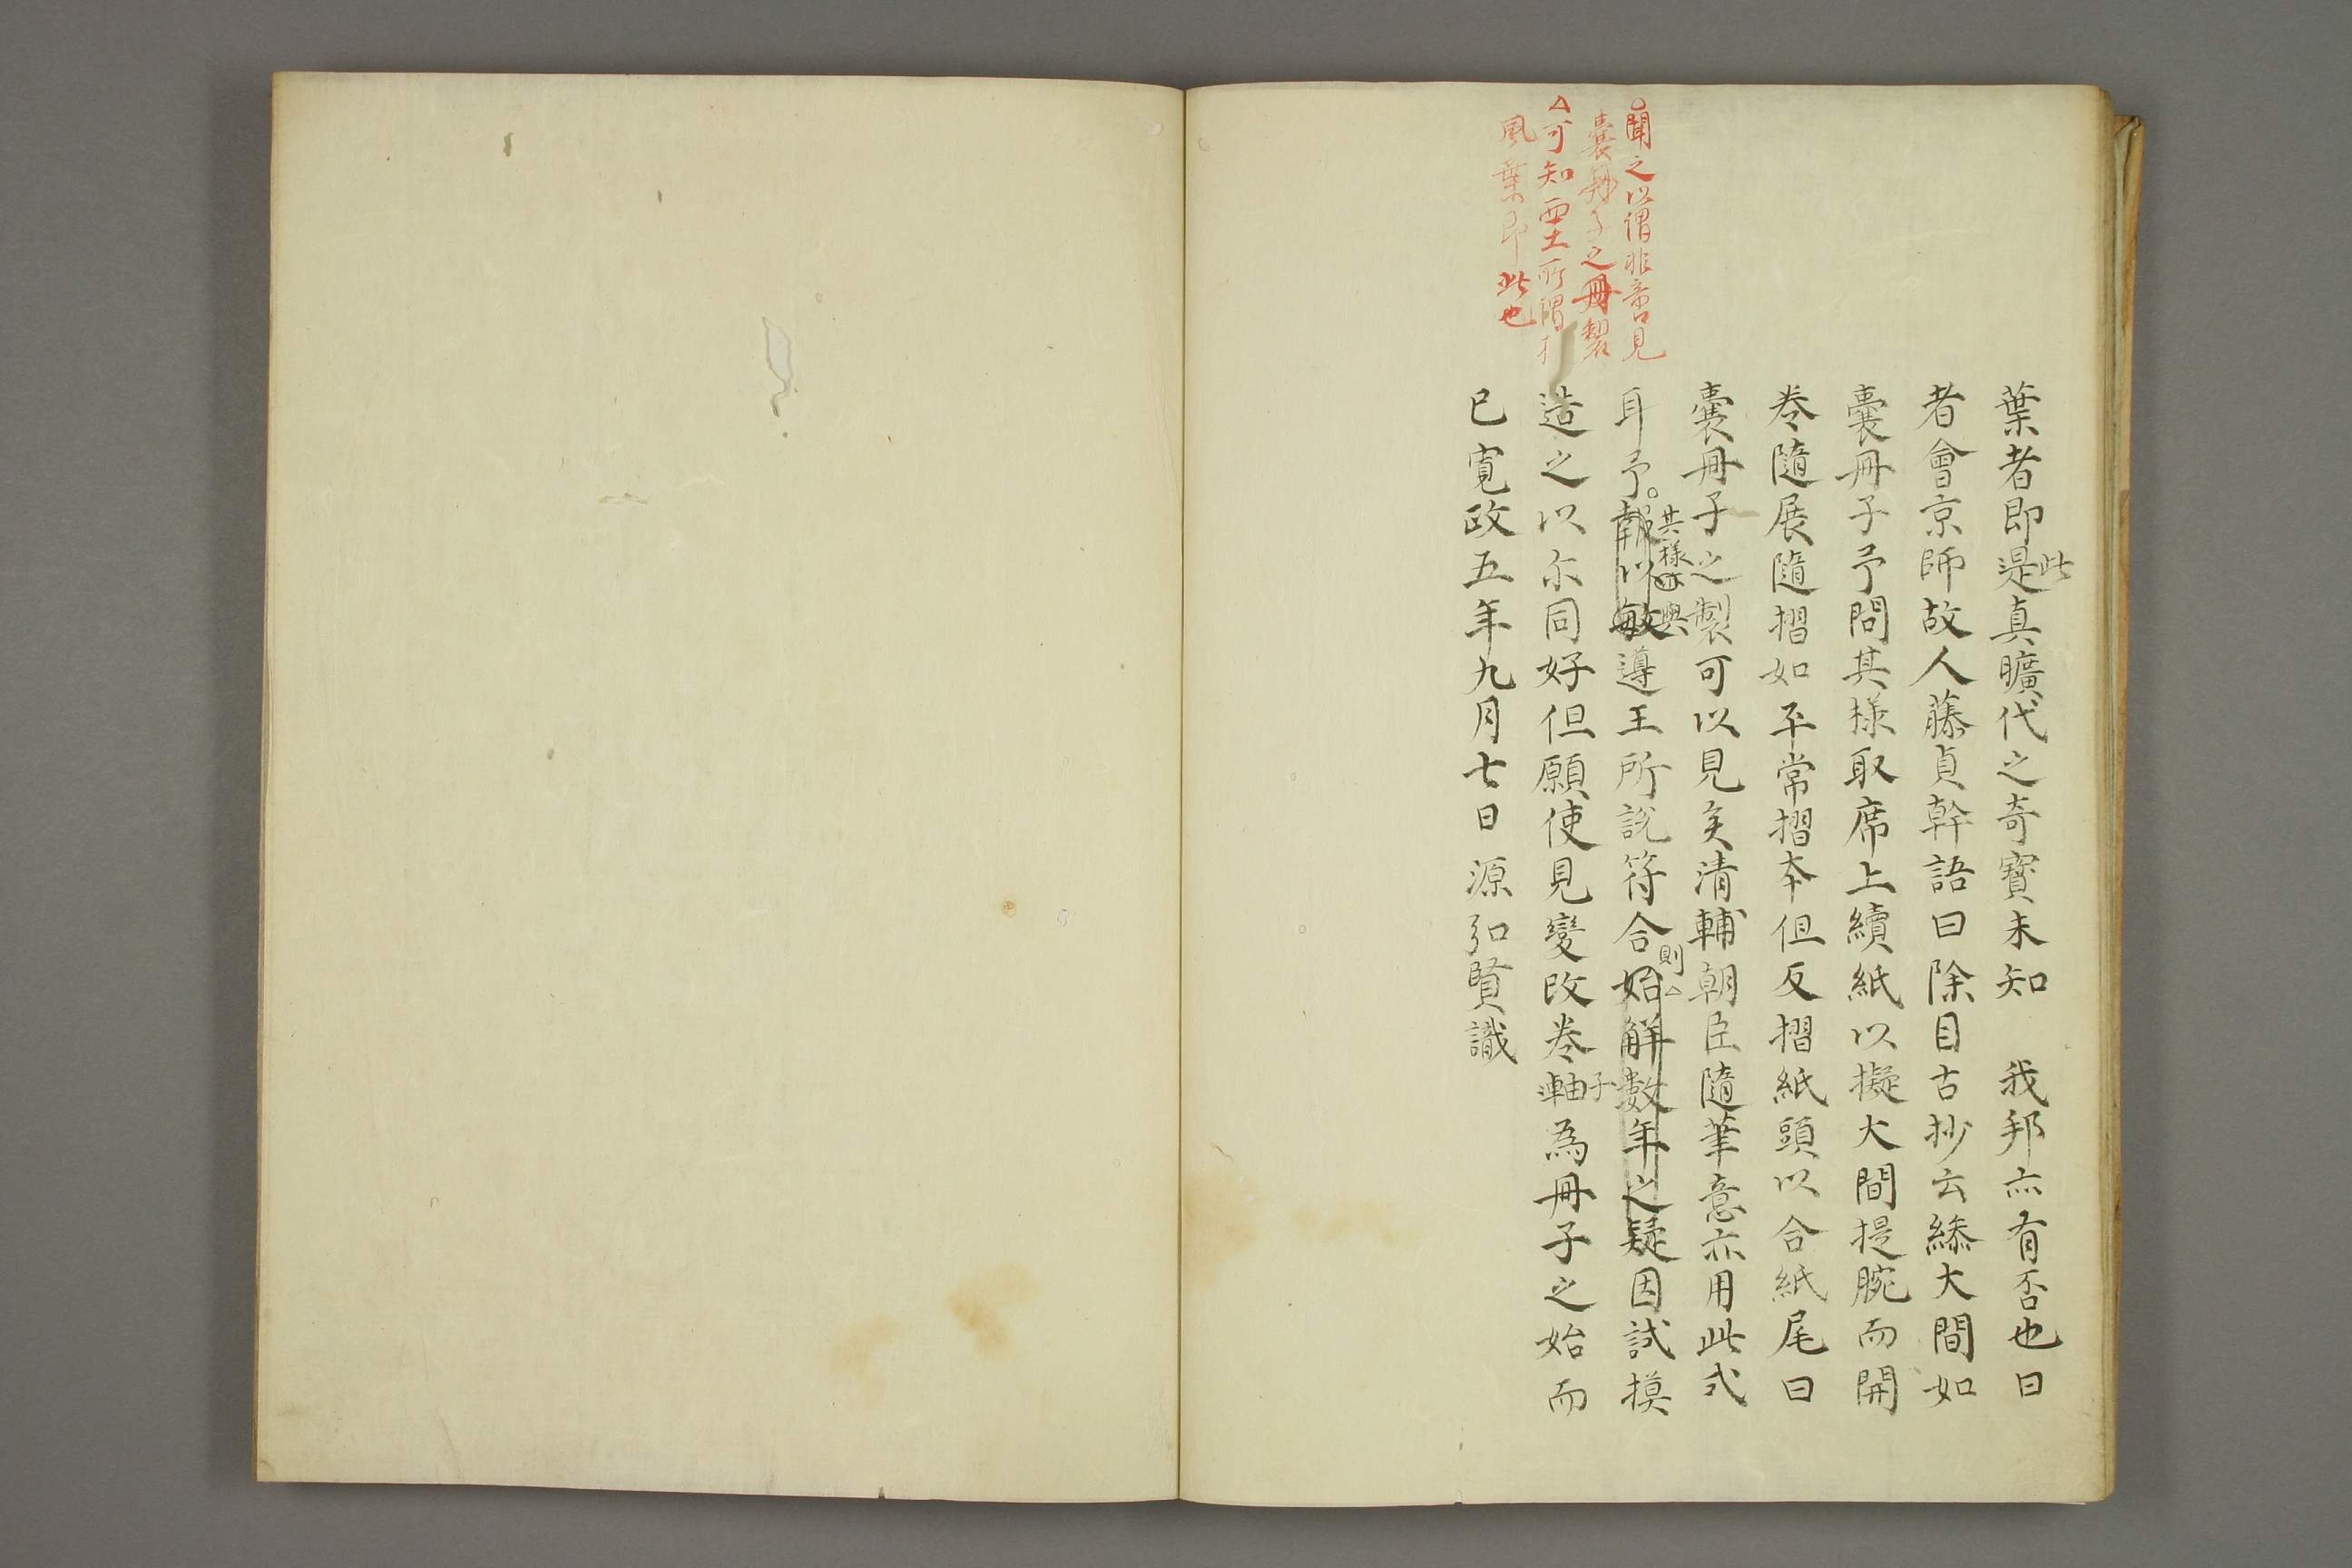 葉者即是真曠代之奇寶未知　我邦亦有否也曰
此
者會京師故人藤貞幹語曰除目古抄云縿大間如
囊冊子予問其様取席上續紙以擬大間提腕而開
卷隨展隨摺如平常摺本但反摺紙頭以合紙尾曰
囊冊子之製可以見矣清輔朝臣隨筆意亦用此式
耳予報以敏遵王所說符合始解數年之疑因試摸
其様 與
則
造之以尓同好但願使見變改卷軸為冊子之始而
子
已寛政五年九月七日 源弘賢識
聞之以謂非啻見
囊冊子之冊製
可知西土所謂
風葉即此也